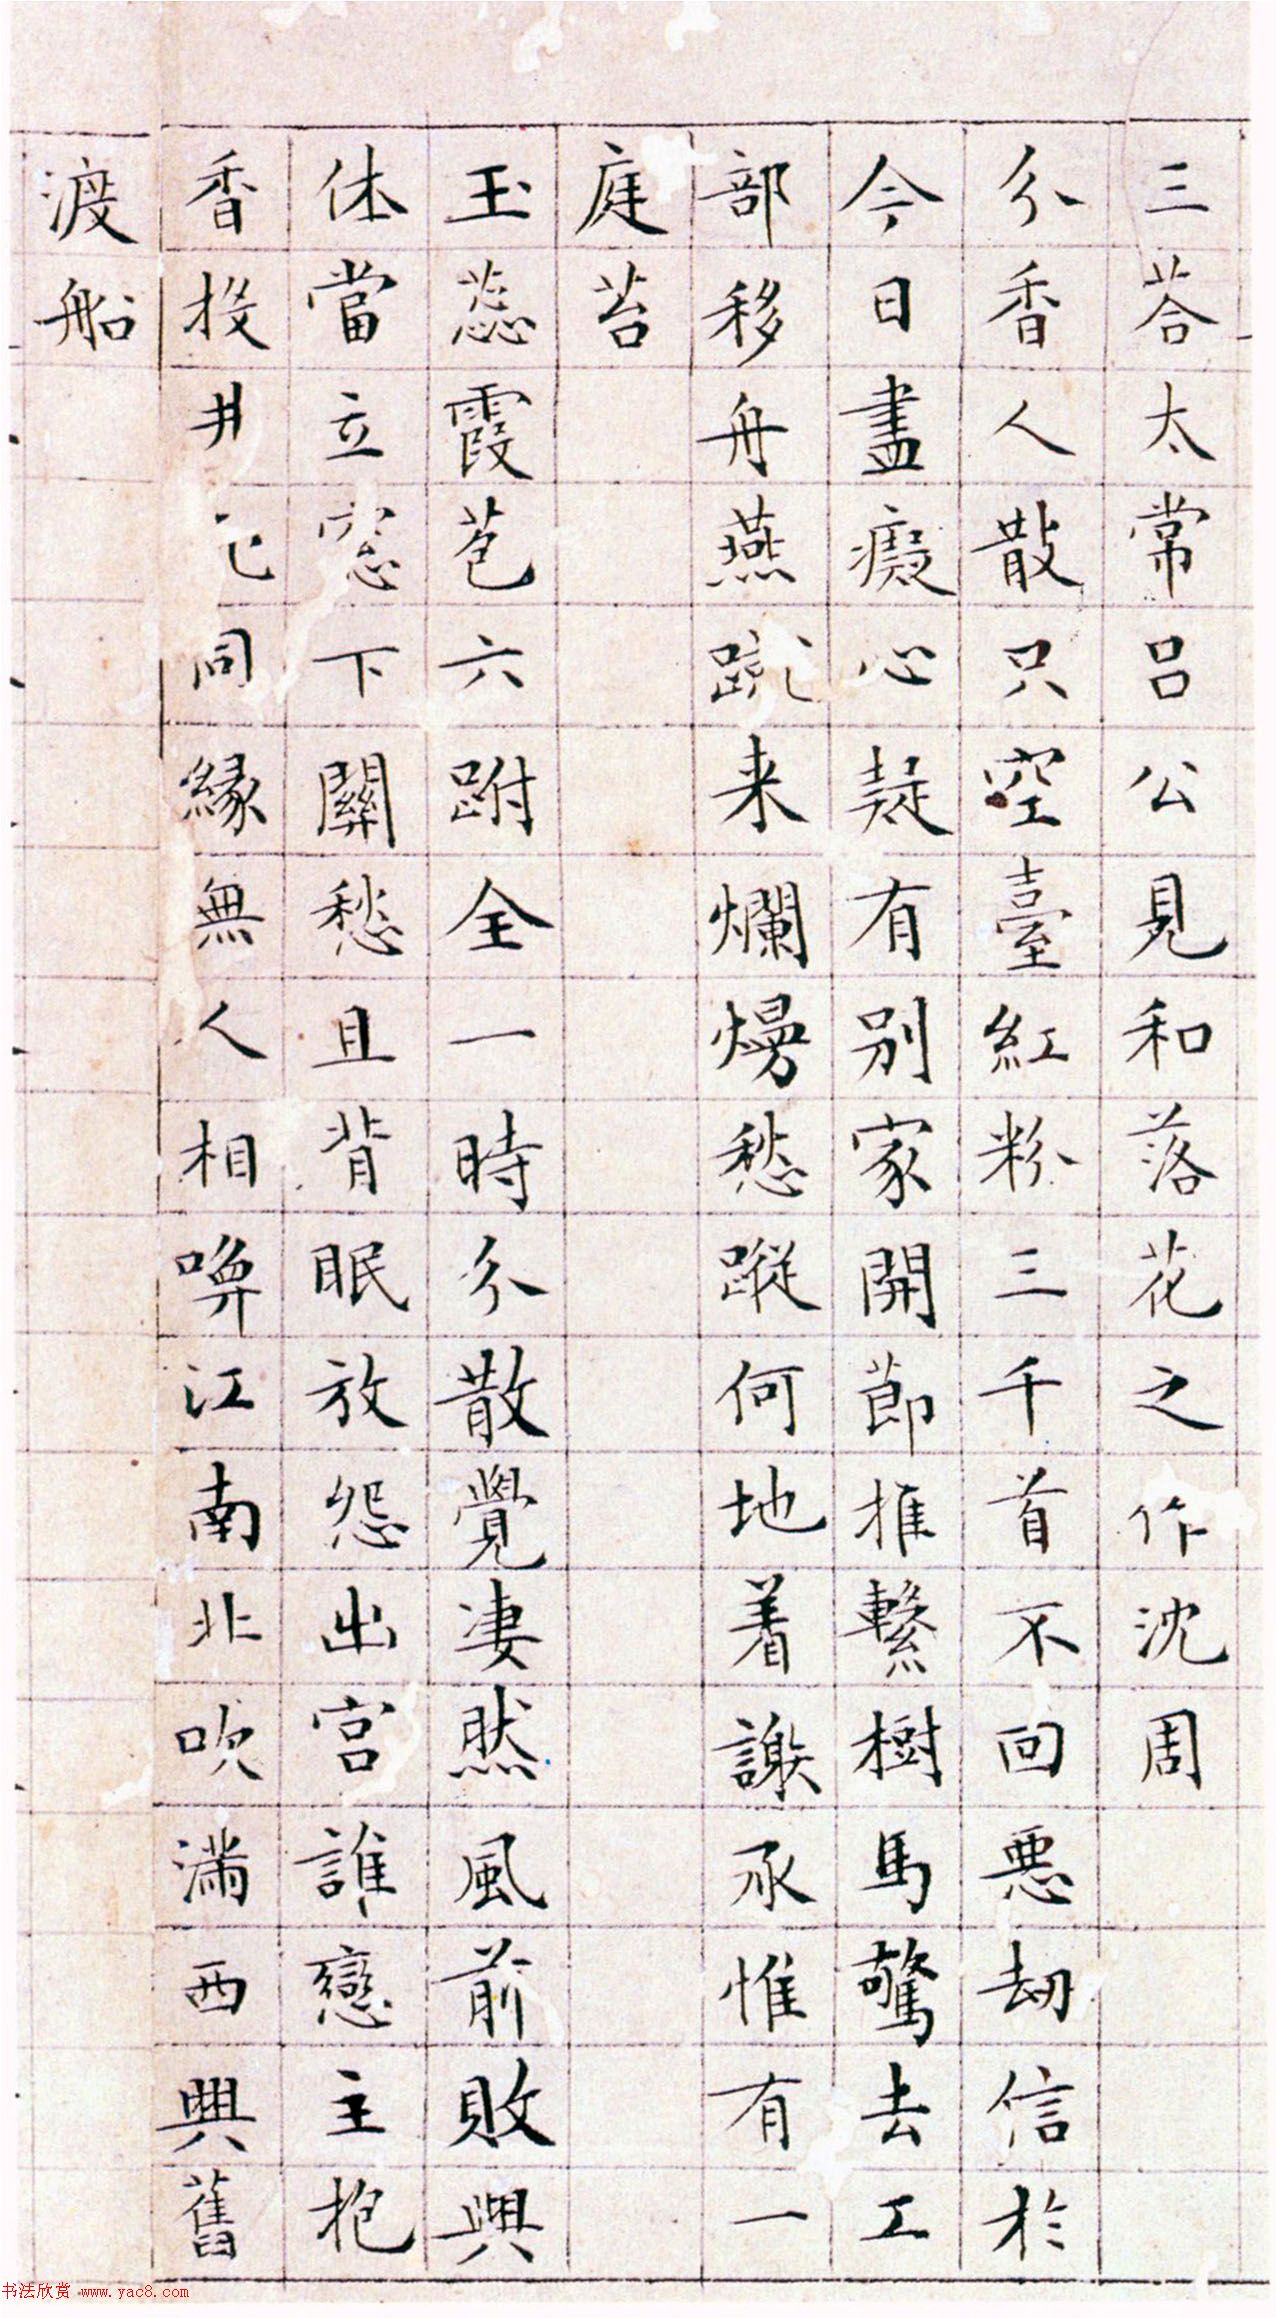 三荅太常吕公見和落花之作沈周
分香人散只空臺紅粉三千首不回惡劫信於
今日盡癡心疑有别家開節推繫樹馬驚去工
部移舟燕蹴来爛熳愁蹤何地着謝承惟有一
庭苔
玉蕊霞苞六跗全一時分散覺凄然風前敗興
休當立窓下關愁且背眠放怨出宫誰戀主抱
香投井同縁無人相喚江南北吹滿西興舊
渡船
书法欣赏 www.yac8.com